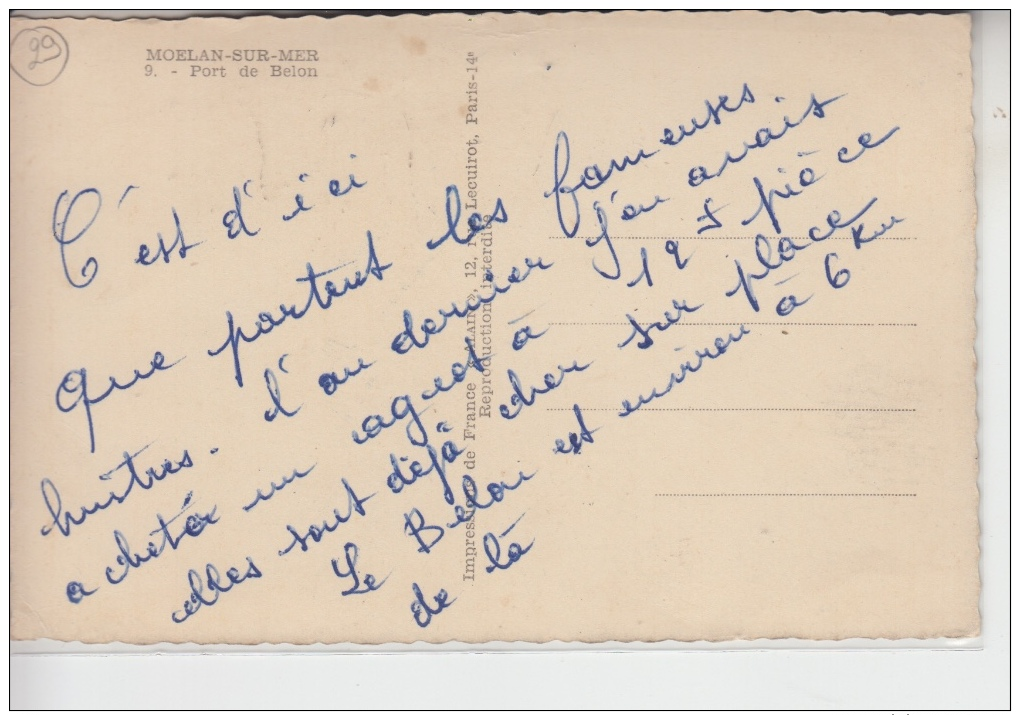 29
MOELAN-SUR-MER
9. - Port de Belon
C'est d'ici
que partent les fameuses
huîtres. l'an dernier j'en avais
acheté un à 19 F pièce
elles sont déjà cher sur place
Le Belon est environ à 6 Km
de là
Impression de France « ALAIN », 12, Lecuirot, Paris-14e
Reproduction interdite